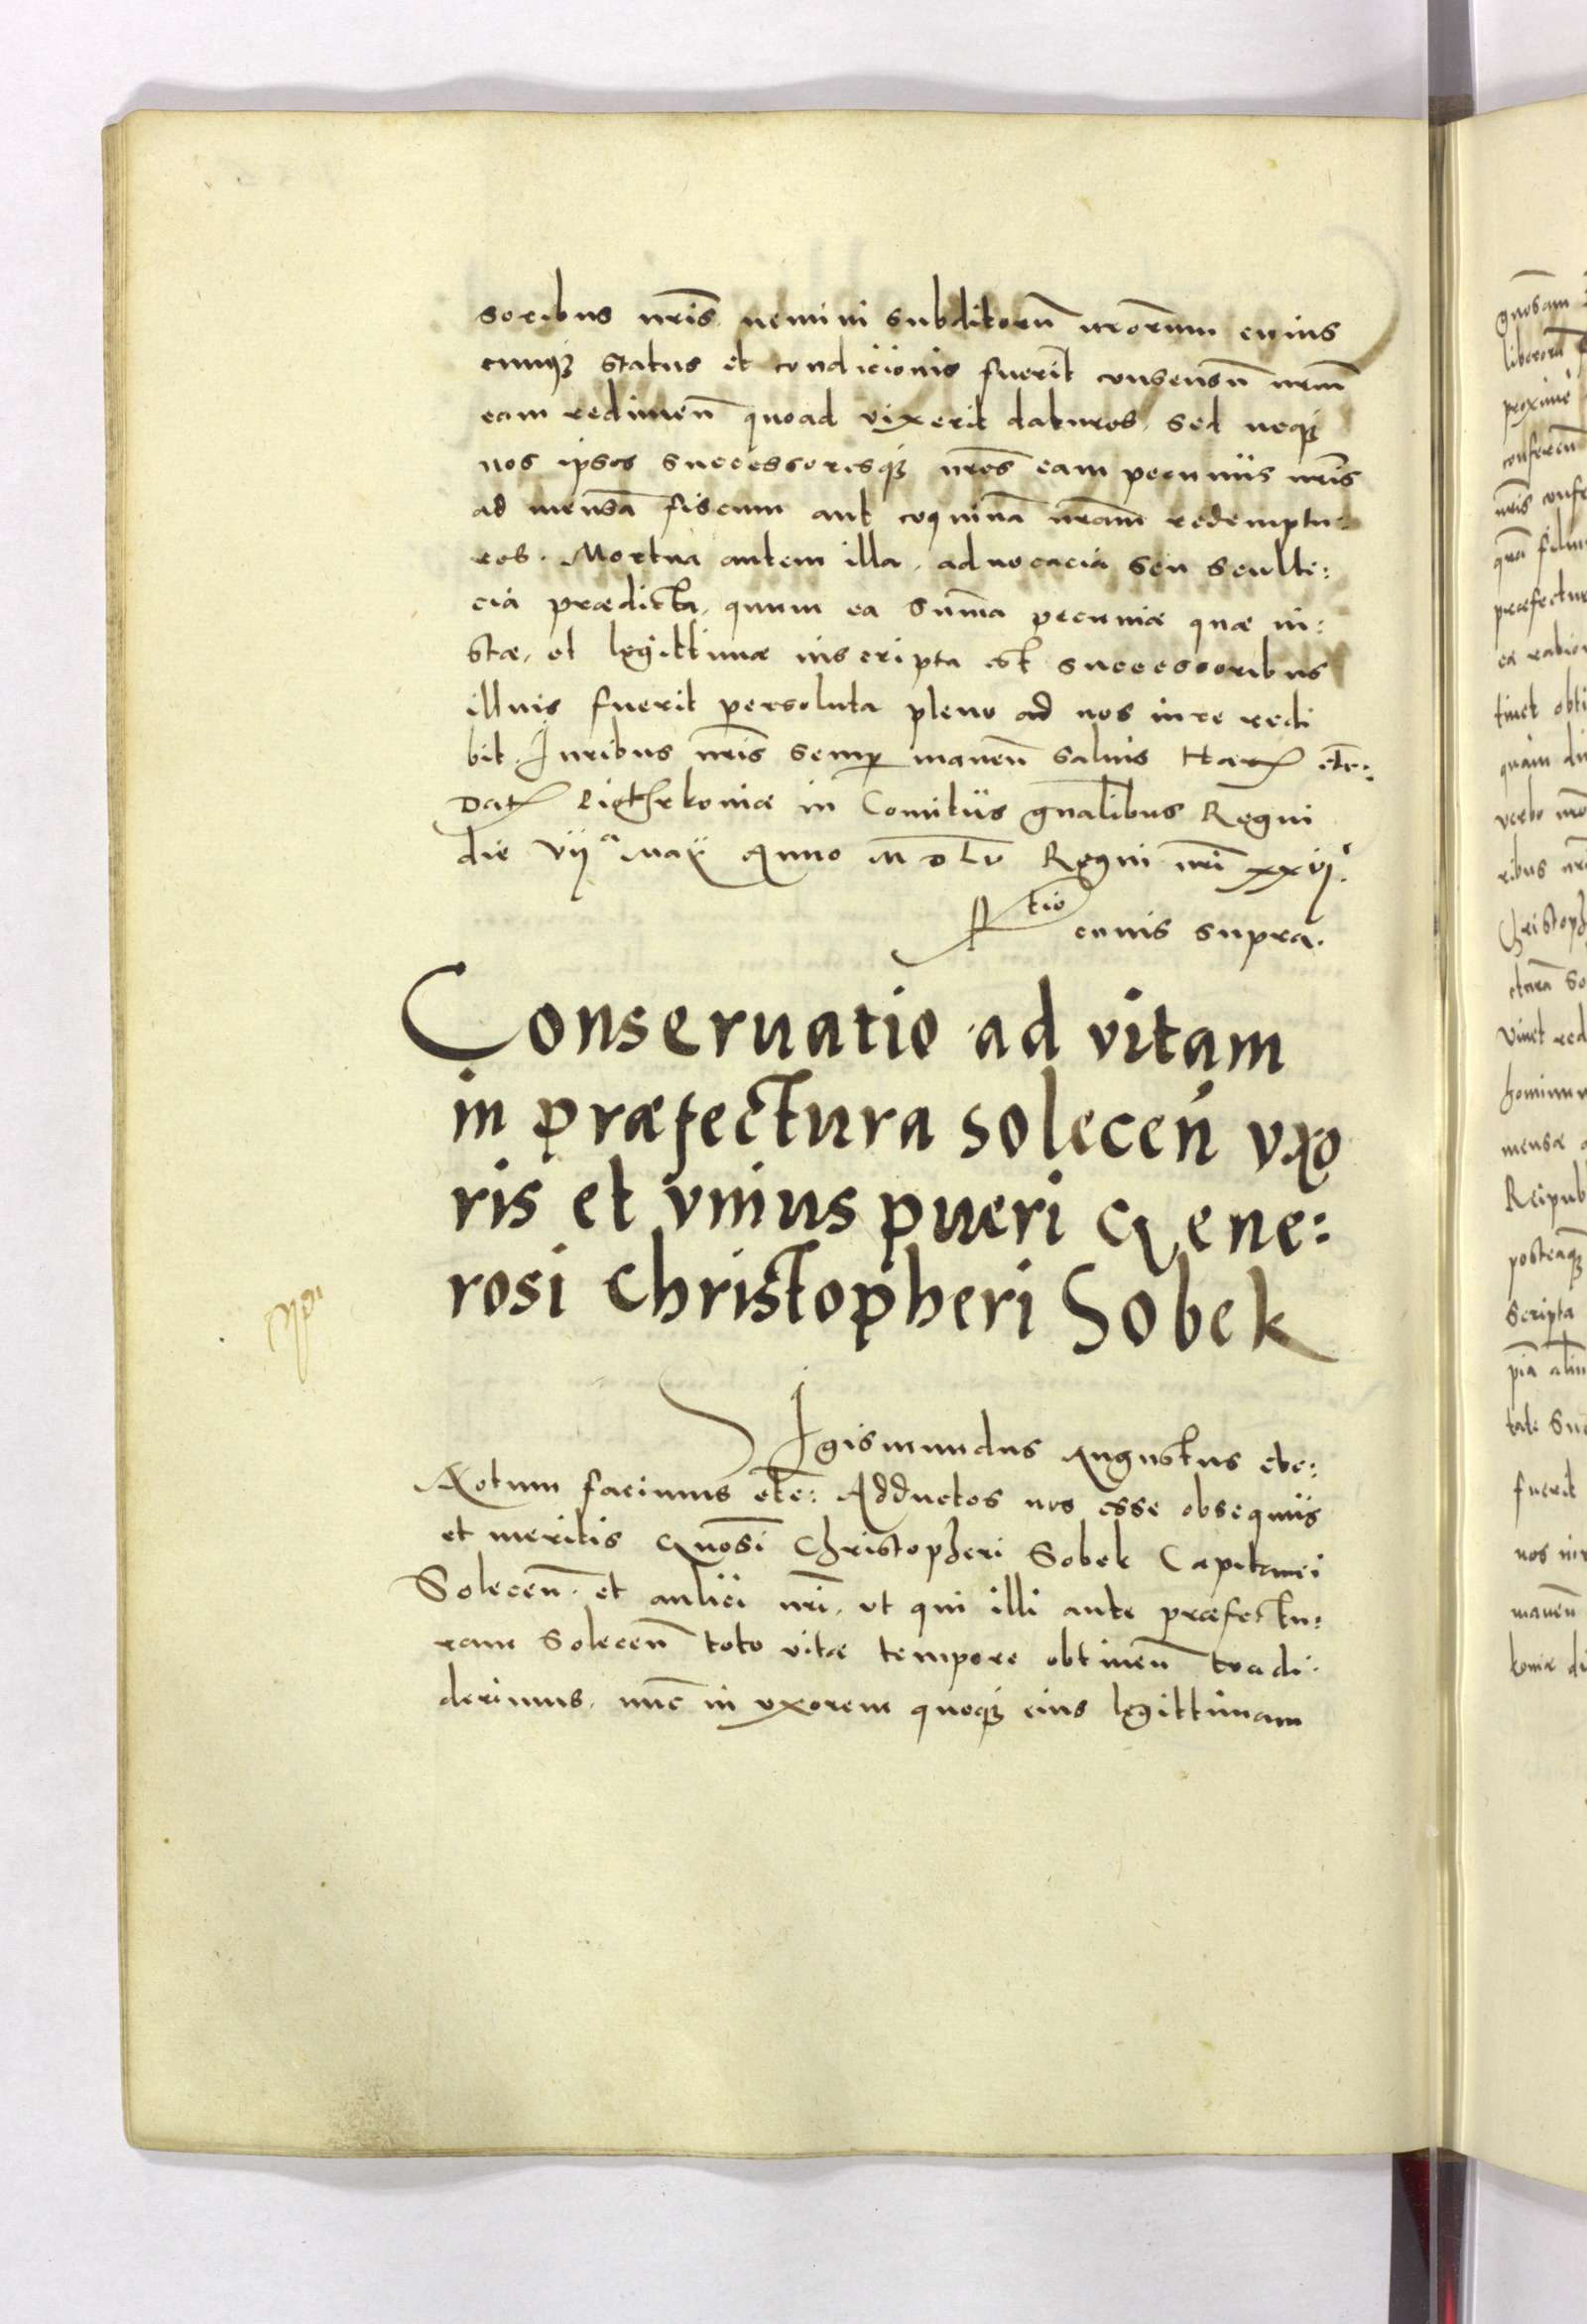 soribus nris nemini subditorũ nrorum cuius
cunq3 status et condicionis fuerit consensũ nrm̃
eam redimeñ quoad vixerit daturos, sed neq3
nos ipsos successoresq3 nros eam pecuniis nris
ad mensã fiscum aut coquinã nram redemptu:
ros. Mortua autem illa, aduocacia seu sculte:
cia prædicta, quum ea suma pecuniæ quæ iu:
stæ, et legittimæ inscripta est successoribus
illius fuerit persoluta pleno ad nos iure redi
bit. Iuribus nris semp maneñ saluis Harꝝ etc:
Datꝝ Piothrkoviæ in Comitiis gnalibus Regni
die vij a Maÿ Anno M D L V Regni nri xxvj.
Rtio
cuius supra.
Conseruatio ad vitam
in præfectura soleceñ vxo
ris et vnius pueri Gene:
rosi Christopheri Sobek
Sigismundus Augustus etc:
Notum facimus etc: Adductos nos esse obsequiis
et meritis Gnosi Christopheri Sobek Capitanei
Soleceñ. et aulici nri, ut qui illi ante præfectu:
ram Soleceñ toto vitæ tempore obtineñ tradi
derimus, nũc in vxorem quoq3 eius legittimam
quosam
liberorũ
proxime
confereñ
nris confe
quã filiu
præfectur
ea ratio
tinet obti
quam di
verbo
ribus nr
Christoph
cturã So
vivet red
hominu
mensæ
Reipub
posteaq3
scripta
piã aliu
tati Suc
fuerit
nos iur
maneñ
koviæ di